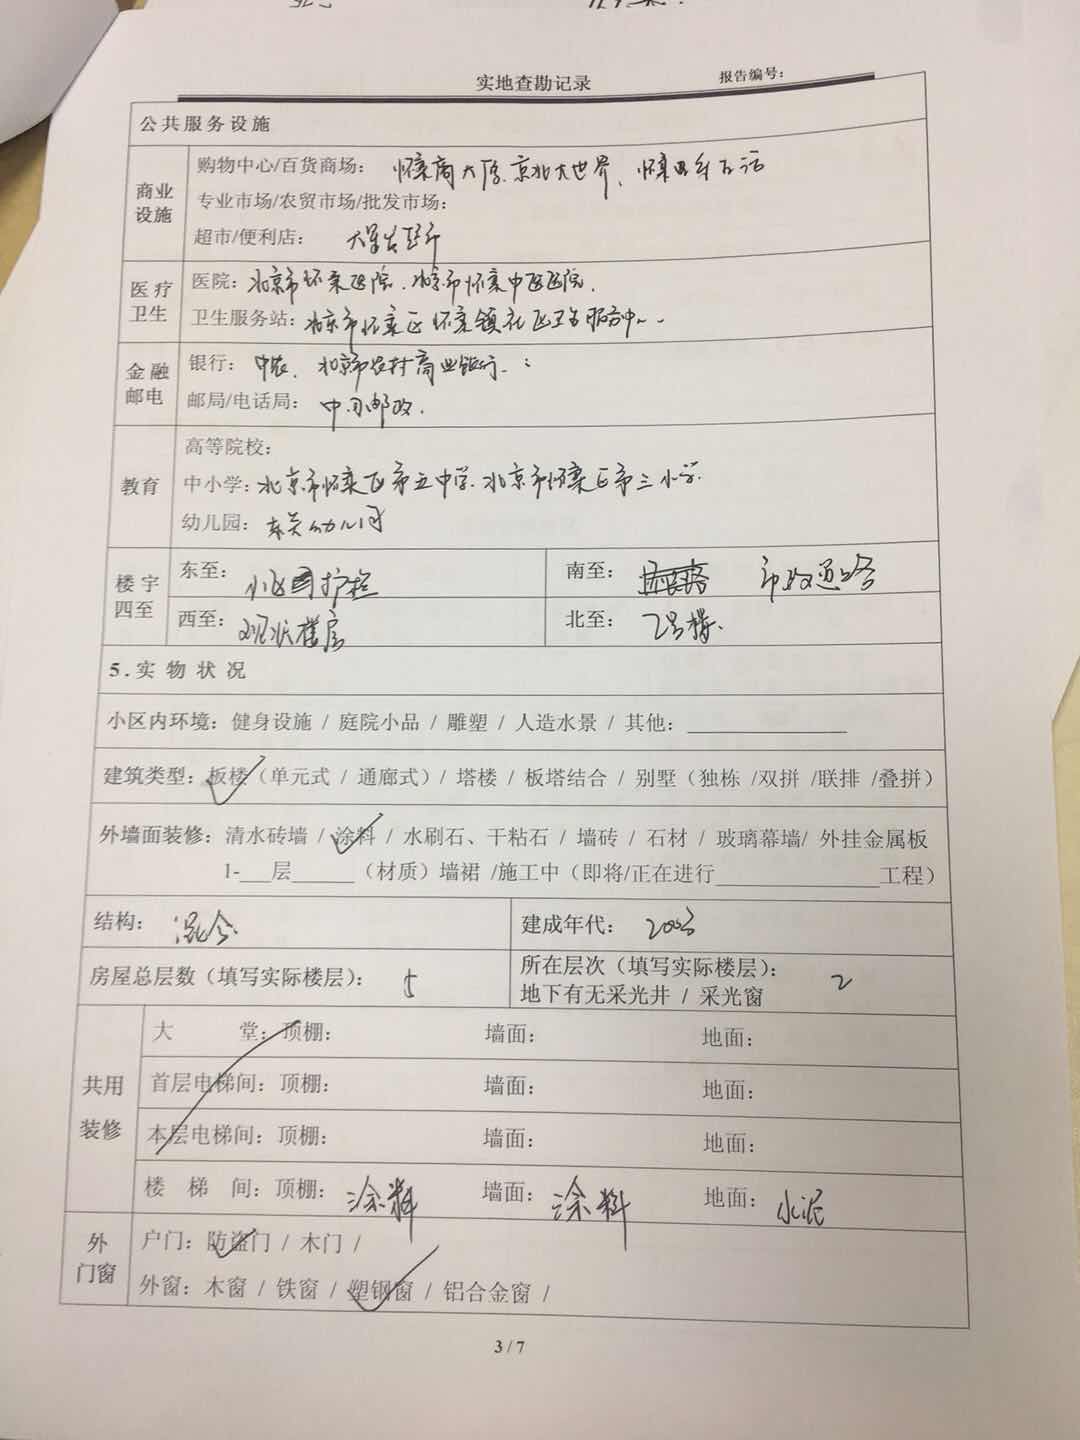 实地查勘记录 报告编号：
公共服务设施
商业设施
购物中心/百货商场： 怀柔商大厦、京北大世界、怀柔百
专业市场/农贸市场/批发市场：
超市/便利店： 大
医疗卫生
医院：北京市怀柔医院、北京市怀柔中医医院、
卫生服务站：北京市怀柔区怀柔镇社区卫生服务中心、
金融邮电
银行： 中农、北京农村商业银行、
邮局/电话局： 中国邮政、
教育
高等院校：
中小学：北京市怀柔区第五中学、北京市怀柔区第三小学、
幼儿园： 东关幼儿园
楼宇四至
东至： 小区围护栏 南至： 市政道路
西至： 现状楼房 北至： 2号楼、
5.实物状况
小区内环境：健身设施 / 庭院小品 / 雕塑 / 人造水景 / 其他：
建筑类型：板楼（单元式 / 通廊式）/ 塔楼 / 板塔结合 / 别墅（独栋 /双拼 /联排 /叠拼）
外墙面装修：清水砖墙 / 涂料 / 水刷石、干粘石 / 墙砖 / 石材 / 玻璃幕墙/ 外挂金属板
1-___层______（材质）墙裙 /施工中（即将/正在进行________________工程）
结构： 混合 建成年代： 2003
房屋总层数（填写实际楼层）： 5 所在层次（填写实际楼层）： 2
地下有无采光井 / 采光窗
共用装修
大 堂：顶棚： 墙面： 地面：
首层电梯间：顶棚： 墙面： 地面：
本层电梯间：顶棚： 墙面： 地面：
楼 梯 间：顶棚： 涂料 墙面： 涂料 地面： 水泥
外门窗
户门：防盗门 / 木门 /
外窗：木窗 / 铁窗 / 塑钢窗 / 铝合金窗 /
3 / 7